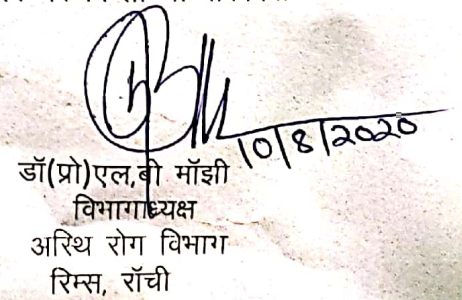 10/8/2020
डॉ(प्रो)एल,बी मॉझी
विभागाध्यक्ष
अस्थि रोग विभाग
रिम्स, रॉची